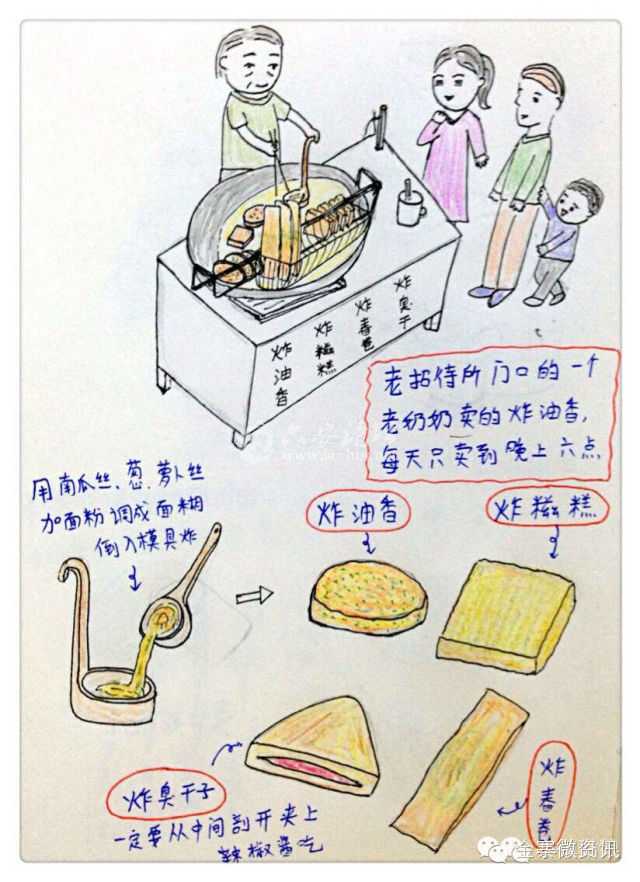 炸油香
炸糍糕
炸春卷
炸臭干
老招待所门口的一个
老奶奶卖的炸油香,
每天只卖到晚上六点
用南瓜丝、葱、萝卜丝
加面粉调成面糊
倒入模具炸
炸油香
炸糍糕
炸臭干子
一定要从中间剖开夹上
辣椒酱吃
炸春卷
金寨微资讯